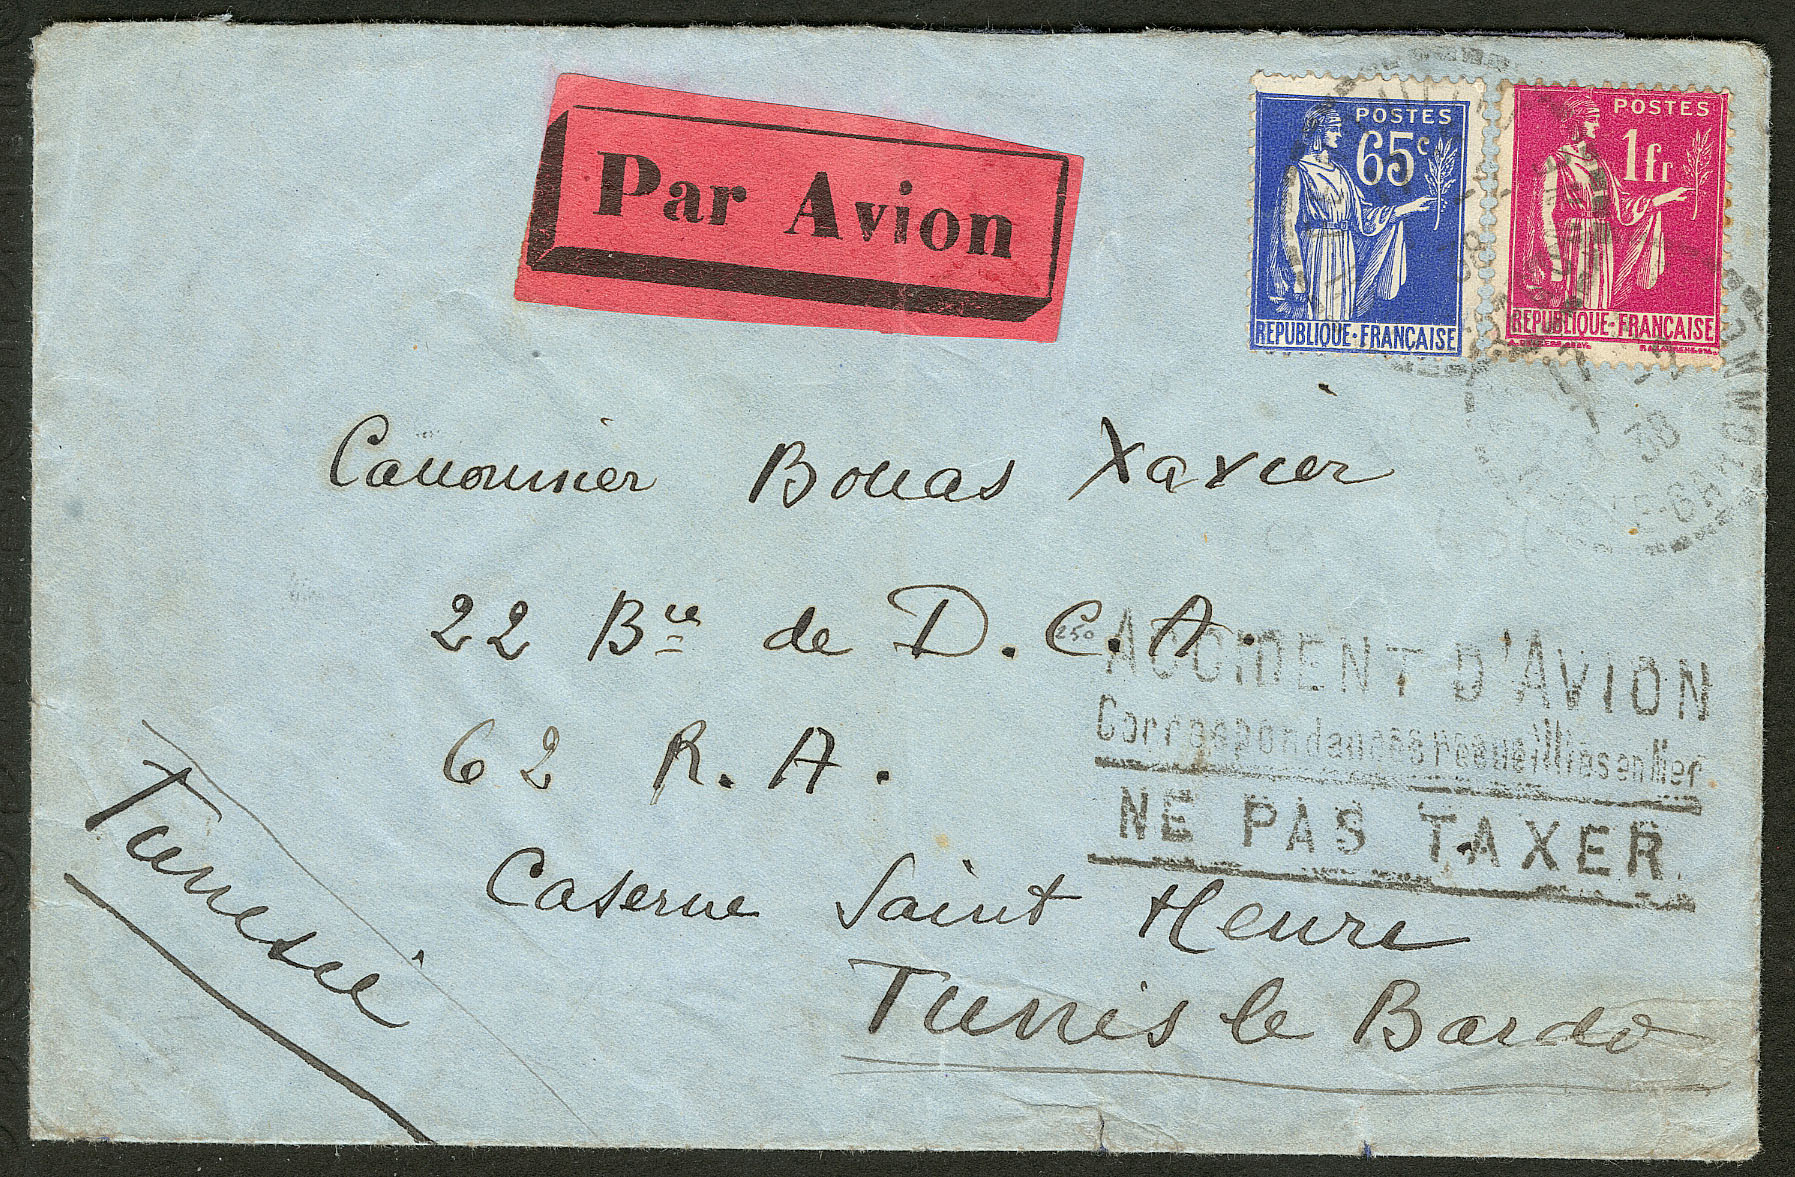 Par Avion
POSTES
65c
REPUBLIQUE·FRANÇAISE
POSTES
1fr
REPUBLIQUE·FRANÇAISE
17
38
Canonnier Bouas Xavier
22 Bie de D.C.A.
250
62 R.A.
Caserne Saint Henri
Tunis le Bardo
Tunisie
ACCIDENT D'AVION
Correspondances recueillies en Mer
NE PAS TAXER.